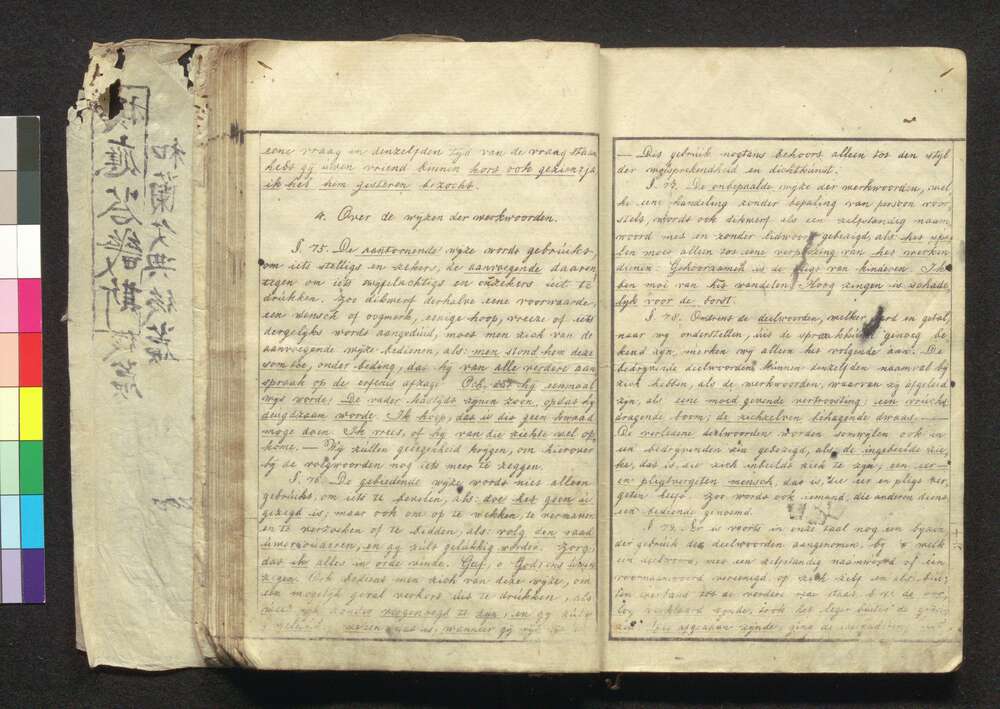 eene vraag in denzelfden tijd van de vraag staan
hebt gij uwen vriend binnen kort ook gezien? ja
ik heb hem gisteren bezocht.
4. Over de wijzen der werkwoorden.
§. 75. De aantoonende wijze wordt gebruikt,
om iets stelligs en zekers, de aanvoegende daaren
tegen om iets twijfelachtigs en onzekers uit te
drukken. Zoo dikwerf derhalve eene voorwaarde,
een wensch of oogmerk, eenige hoop, vreeze of iets
dergelijks wordt aangeduid, moet men zich van de
aanvoegende wijze bedienen, als: men stond hem deze
som toe, onder beding, dat hij van alle verdere aan
spraak op de erfenis afzage. Och dat hij eenmaal
wijs worde! De vader kastijdt zijnen zoon, opdat hij
deugdzaam worde. Ik hoop, dat is die geen kwaad
moge doen. Ik vrees, of hij van die ziekte wel op
kome. — Wij zullen gelegenheid krijgen, om hierover
bij de volgwoorden nog iets meer te zeggen.
§. 76. De gebiedende wijze wordt niet alleen
gebruikt, om iets te bevelen, als: doe het geen u
gezegd is; maar ook om op te wekken, te vermanen
en te verzoeken of te bidden, als: volg den raad
uwer ouderen, en gij zult gelukkig worden. Zorg,
dat ik alles in orde vinde. Geef, o God! ons uwen
zegen. Ook bedient men zich van deze wijze, om
een mogelijk geval verkort uit te drukken, als
wees rijk zonder vergenoegd te zijn, en gij zult
— Dit gebruik nogtans behoort alleen tot den stijl
der welsprekendheid en dichtkunst.
§. 77. De onbepaalde wijze der werkwoorden, wel
ke eene handeling zonder bepaling van persoon voor
stelt, wordt ook dikwerf als een zelfstandig naam
woord met en zonder lidwoord gebezigd, als: het spe
len moet alleen tot eene verpoozing van het werken
dienen. Gehoorzamen is de pligt van kinderen. Ik
ben moi van het wandelen. Hoog zingen is schade
lijk voor de borst.
§. 78. Omtrent de deelwoorden, welker aard en getal,
naar wij onderstellen, uit de spraakkunst genoeg be
kend zijn, merken wij alleen het volgende aan. De
bedrijvende deelwoorden kunnen denzelfden naamval bij
zich hebben, als de werkwoorden, waarvan zij afgeleid
zijn, als: eene moed gevende vertroosting; een vrucht
dragende boom; de zichzelven behagende dwaas. —
De verledene deelwoorden worden somwijlen ook in
een bedrijvenden zin gebezigd, als: de ingebeelde zie
ke, dat is, die zich inbeeldt ziek te zijn; een eer-
en pligtvergeten mensch, dat is, die eer en pligt ver
geten heeft. Zoo wordt ook iemand, die anderen dient,
een bediende genoemd.
§. 79. Er is voorts in onze taal nog een bijzon
der gebruik der deelwoorden aangenomen, bij 't welk
een deelwoord, met een zelfstandig naamwoord of een
voornaamwoord vereenigd, op zich zelf en als bui
ten verband tot de verdere rede staat, b. v. de oor
log verklaard zijnde, trok het leger buiten de grenzen